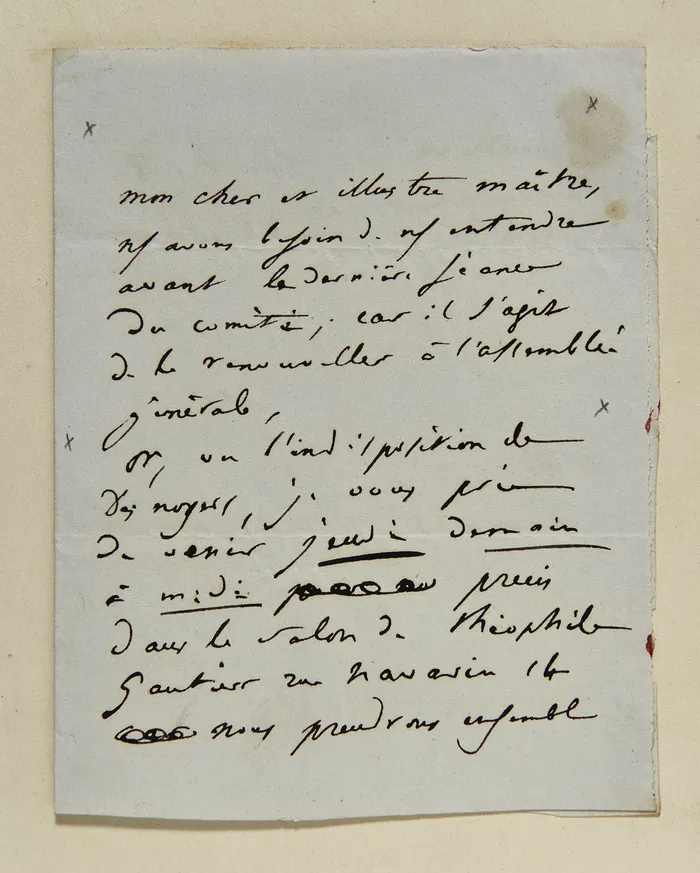 mon cher et illustre maître,
ns avons besoin de ns entendre
avant la dernière séance
du comité, car il s'agit
de le renouveller à l'assemblée
générale,
or, vu l'indisposition de
Desnoyers, je vous prie
de venir jeudi demain
à midi précis
dans le salon de Théophile
Gautier rue navarin 14
nous prendrons ensemble